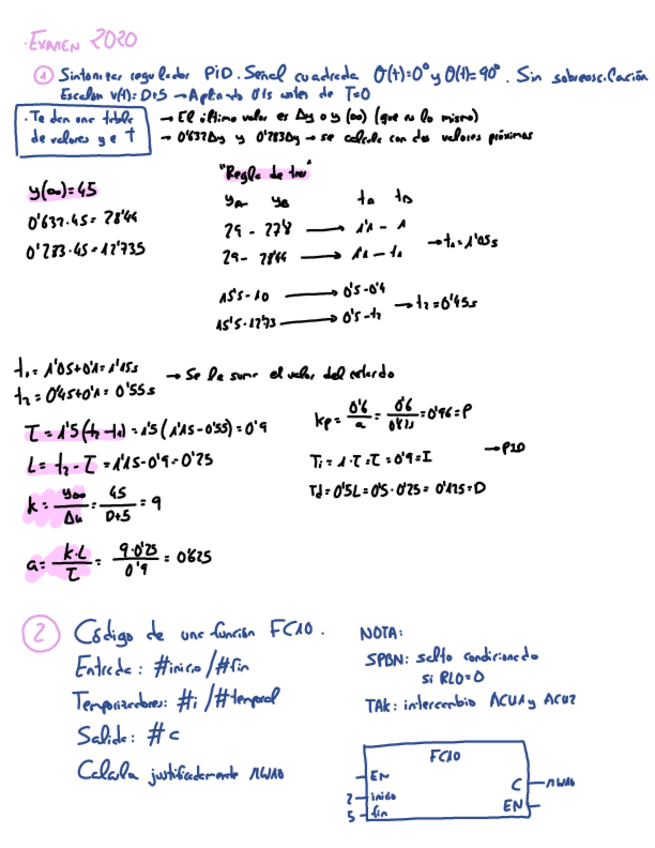 · EXAMEN 2020
① Sintonizar regulador PID. Señal cuadrada θ(t)=0° y θ(t)=90°. Sin sobreoscilación
Escalón v(t)= D+5 → Aplicado 0'1s antes de T=0
· Te dan una tabla de valores y e T
→ El último valor es Δy o y(∞) (que es lo mismo)
→ 0'632Δy y 0'283Δy → se calcula con dos valores próximos
"Regla de tres"
y(∞)=45
0'632·45= 28'44
0'283·45=12'735
yA- yB tA tB
29 - 27'8 → 1'1 - 1
29 - 28'44 → 1'1 - t1 → t1=1'05s
15'5-10 → 0'5-0'4
15'5-12'73 → 0'5-t2 → t2=0'45s
t1= 1'05+0'1=1'15s
t2= 0'45+0'1= 0'55s → Se le suma el valor del retardo
τ= 1'5(t2-t1)=1'5(1'15-0'55)=0'9
L= t2-τ=1'15-0'9=0'25
k= y∞/Δu = 45/D+5 = 9
a= k·L/τ = 9·0'25/0'9 = 0'625
kp= 0'6/a = 0'6/0'625 =0'96=P
Ti= 1·τ=τ=0'9=I → PID
Td=0'5L=0'5·0'25= 0'125=D
② Código de una función FC10.
Entrada: #inicio/#fin
Temporizadores: #i/#temporal
Salida: #c
Calcula justificadamente MW10
NOTA:
SPBN: salto condicionado
si RLO=0
TAK: intercambio ACU1 y ACU2
FC10
EN
2 inicio
5 fin
C MW10
EN